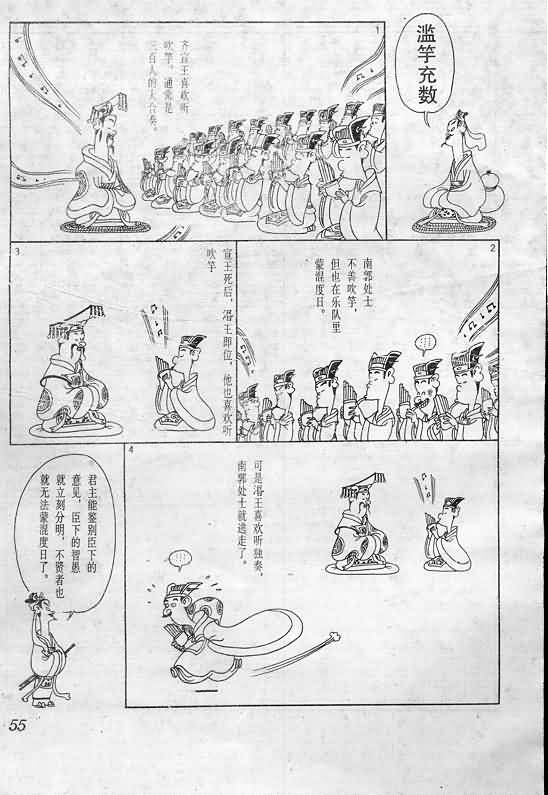 滥竽充数
1
齐宣王喜欢听
吹竽。通常是
三百人的大合奏。
2
南郭处士
不善吹竽，
但也在乐队里
蒙混度日。
3
宣王死后，湣王即位，他也喜欢听
吹竽
4
可是湣王喜欢听独奏，
南郭处士就逃走了。
君主能鉴别臣下的
意见，臣下的智愚
就立刻分明，不贤者也
就无法蒙混度日了。
55